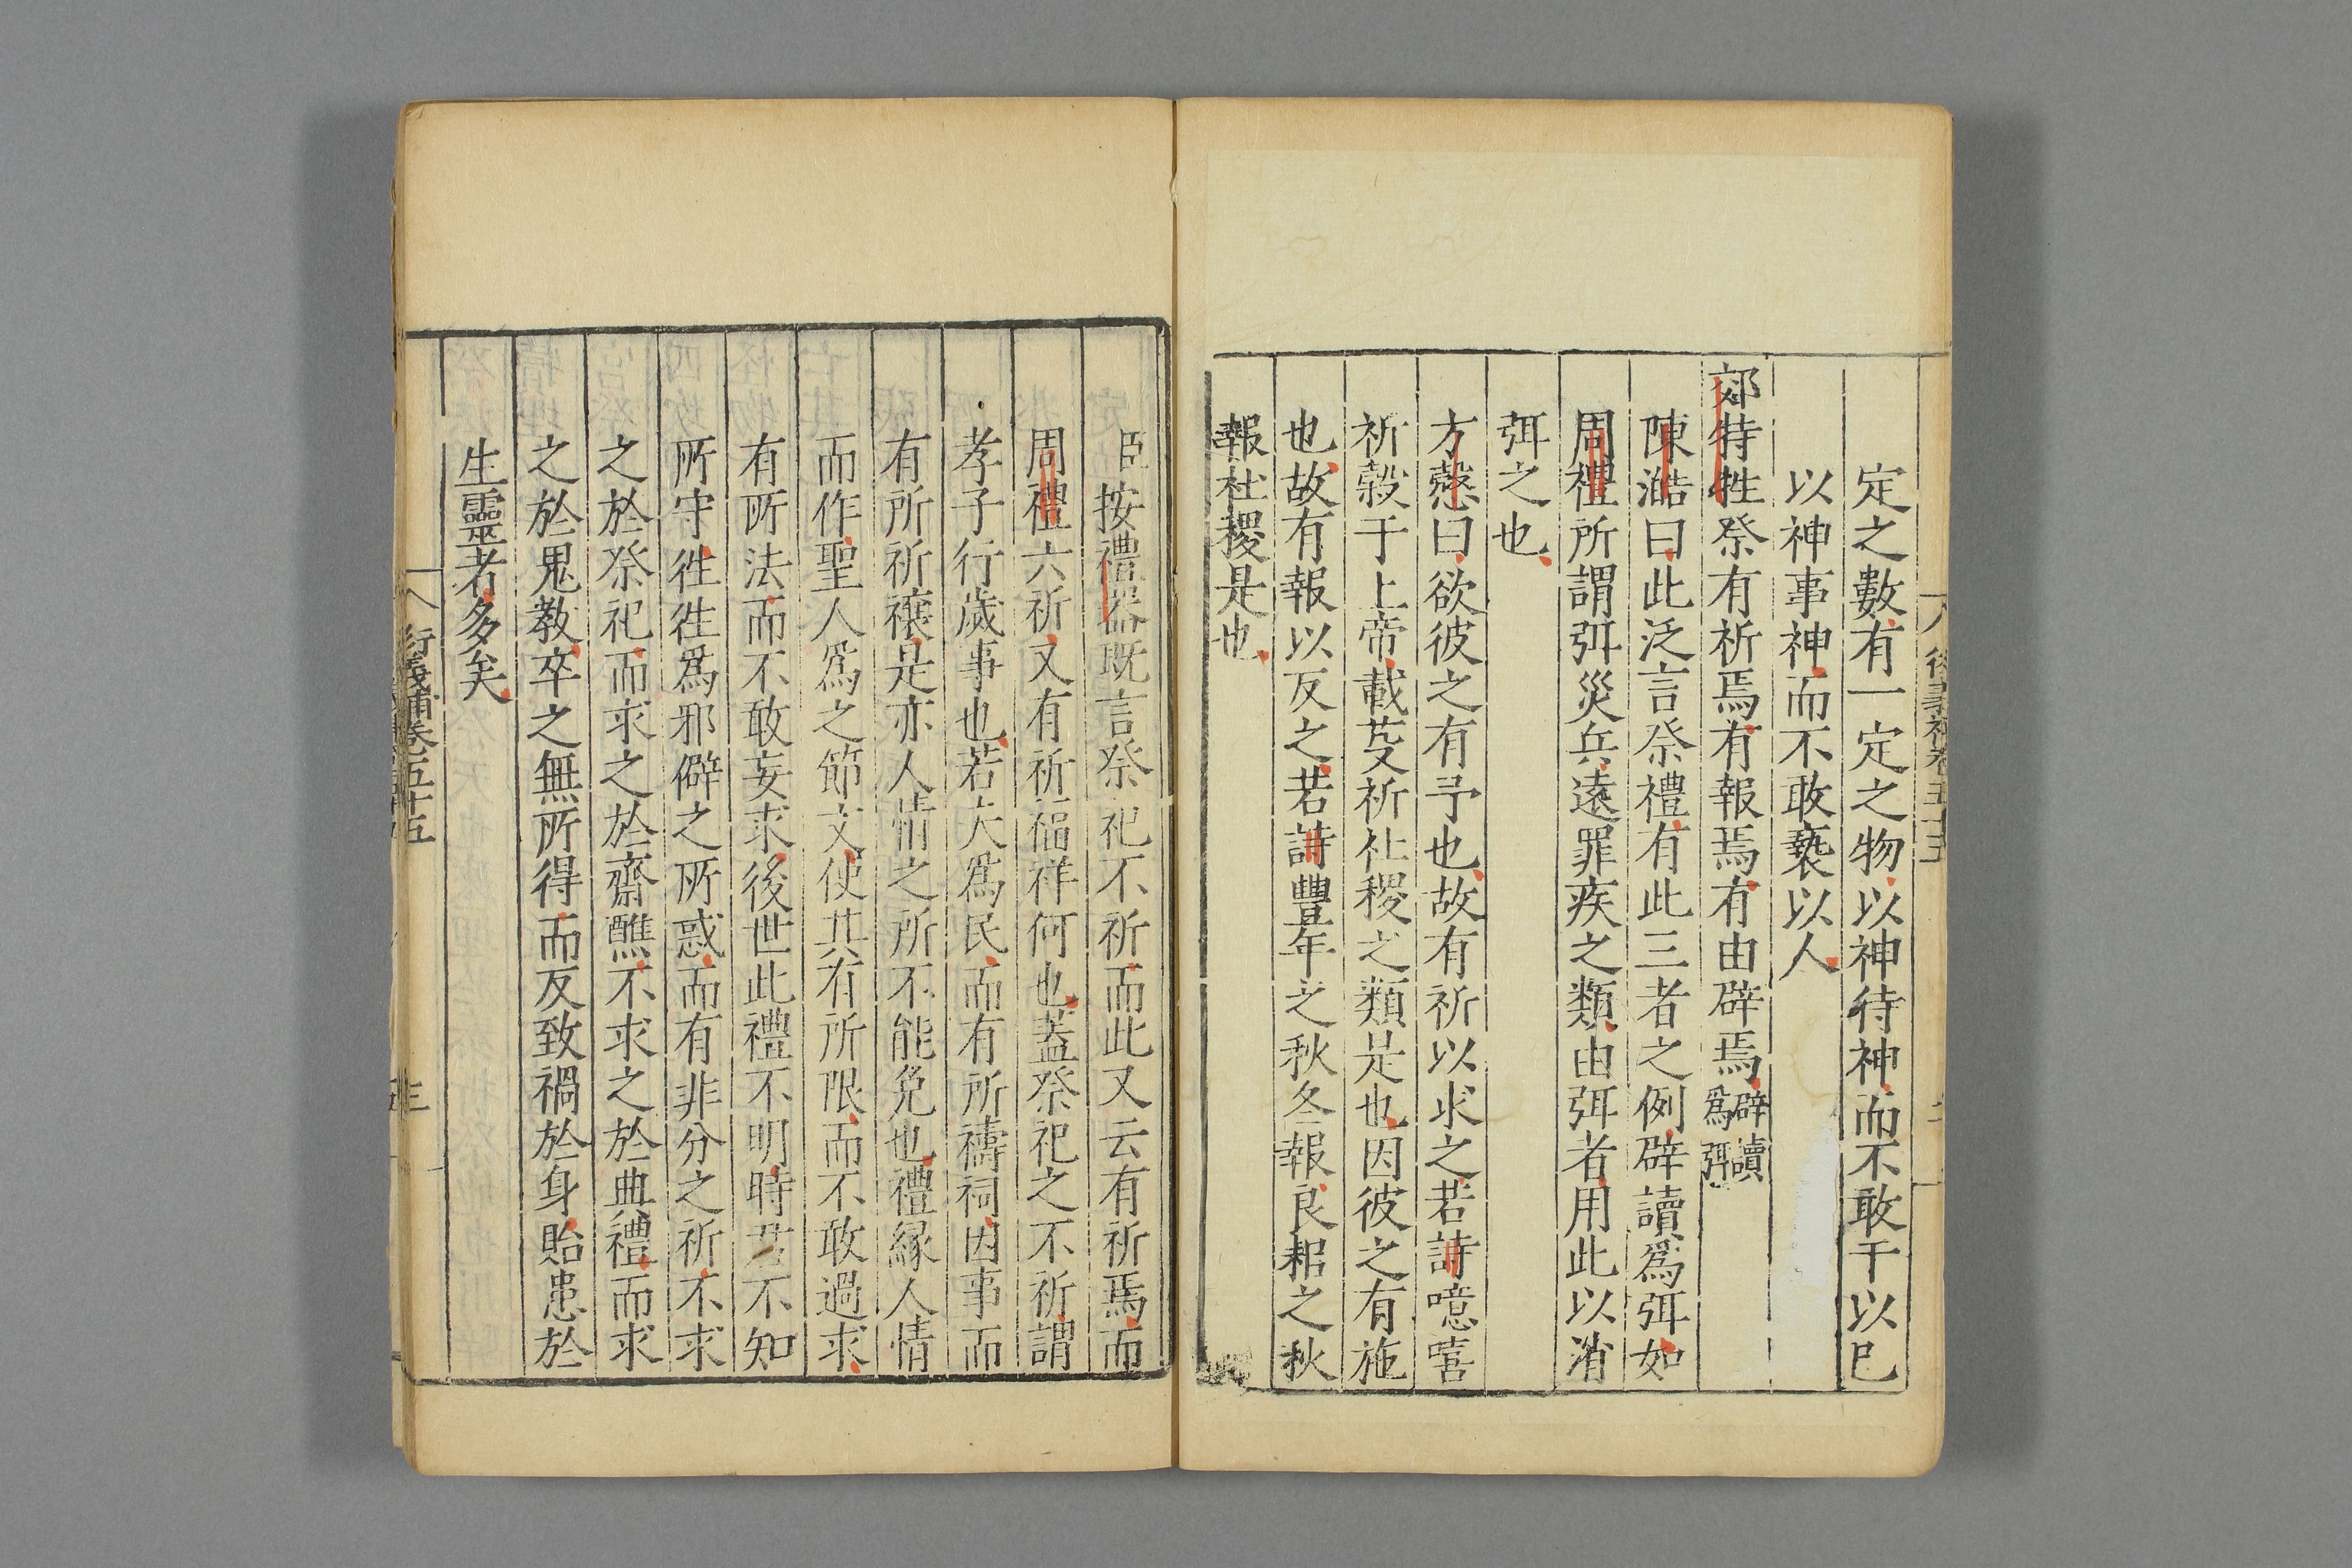 定之數有一定之物以神待神而不敢干以已
以神事神而不敢褻以人
郊特牲祭有祈焉有報焉有由辟焉辟讀爲弭
陳澔曰此泛言祭禮有此三者之例辟讀爲弭如
周禮所謂弭災兵遠罪疾之類由弭者用此以消
弭之也
方慤曰欲彼之有予也故有祈以求之若詩噫嘻
祈穀于上帝載芟祈社稷之類是也因彼之有施
也故有報以反之若詩豐年之秋冬報良耜之秋
報社稷是也
臣按禮器既言祭祀不祈而此又云有祈焉而
周禮六祈又有祈福祥何也蓋祭祀之不祈謂
孝子行歲事也若夫爲民而有所禱祠因事而
有所祈禳是亦人情之所不能免也禮緣人情
而作聖人爲之節文使其有所限而不敢過求
有所法而不敢妄求後世此禮不明時君不知
所守徃徃爲邪僻之所惑而有非分之祈不求
之於祭祀而求之於齋醮不求之於典禮而求
之於鬼教卒之無所得而反致禍於身貽患於
生靈者多矣
衍義補卷五十五